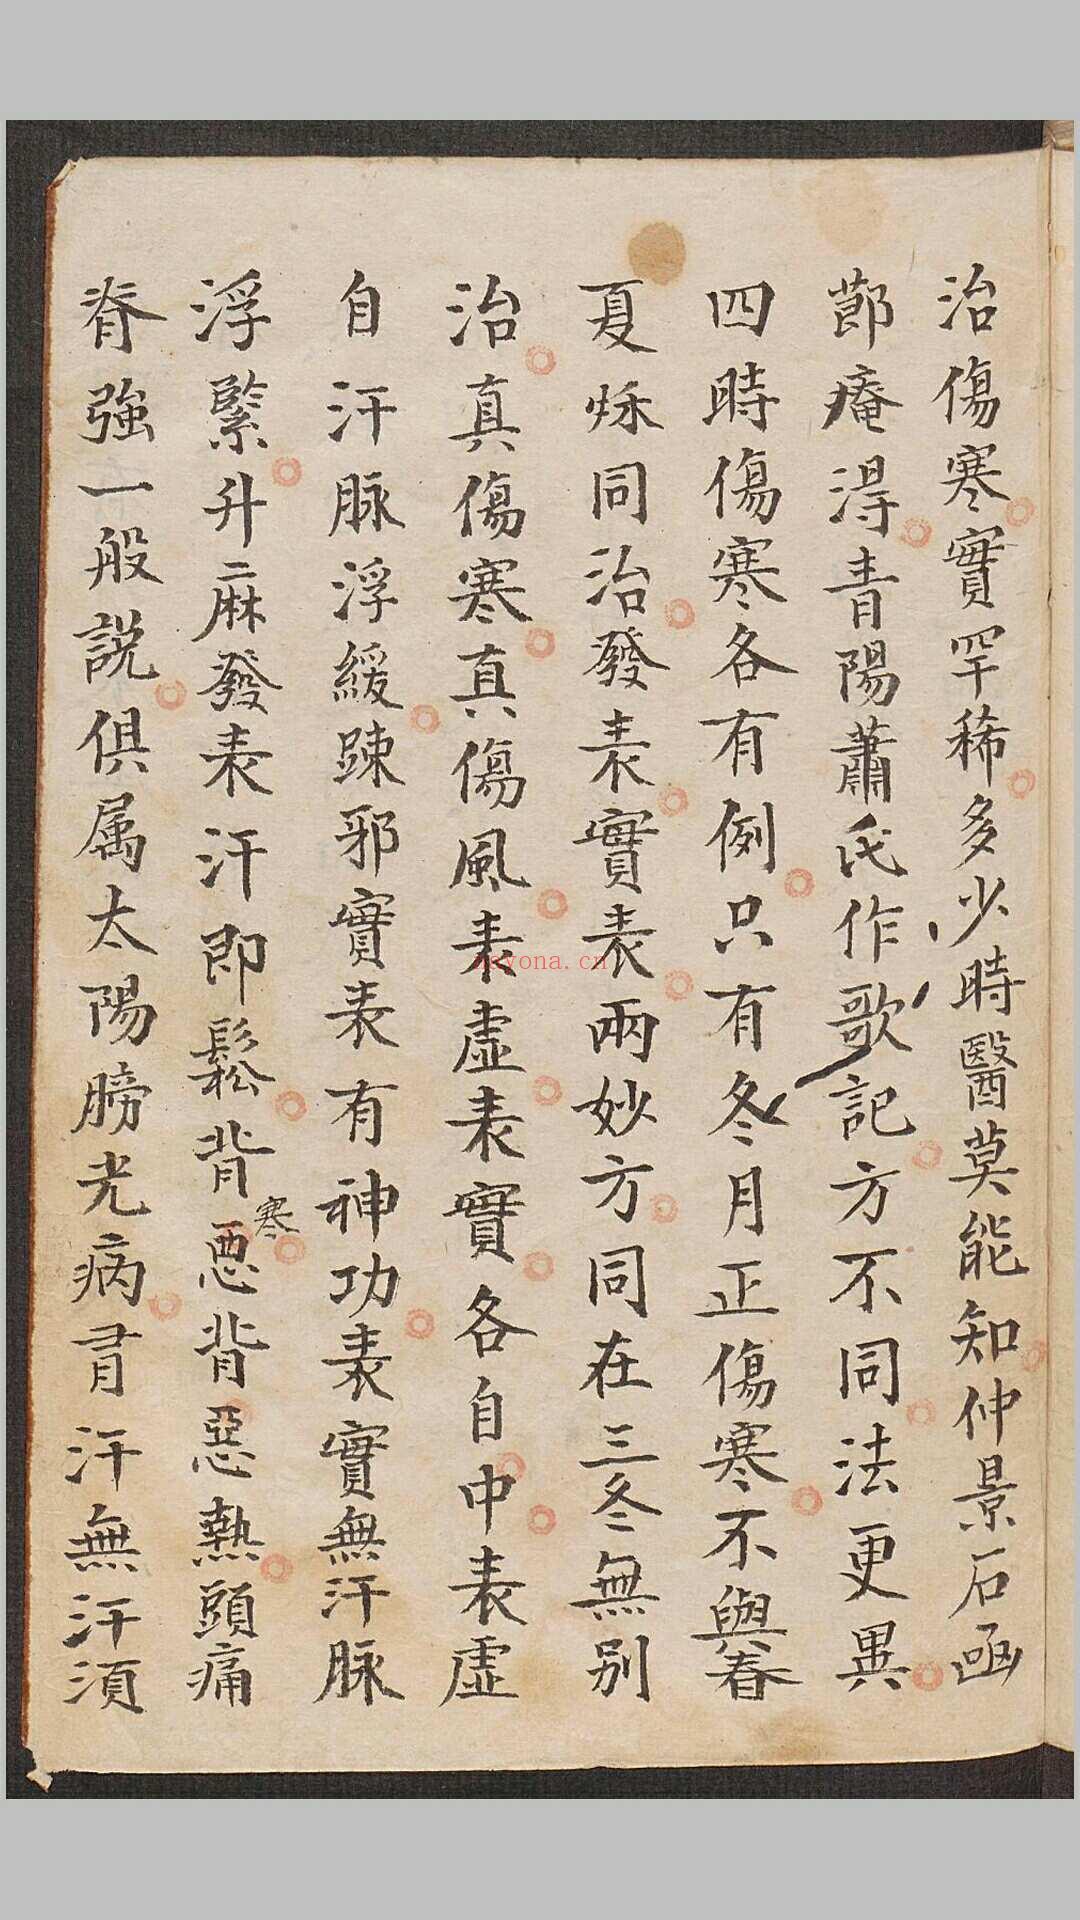 治傷寒實罕稀多少時醫莫能知仲景石函
節庵淂青陽蕭氏作歌記方不同法更異
四時傷寒各有例只有冬月正傷寒不與春
夏秌同治發表實表兩妙方同在三冬無别
治真傷寒真傷風表虛表實各自中表虛
自汗脉浮緩踈邪實表有神功表實無汗脉
浮緊升麻發表汗即鬆背惡寒背惡熱頭痛
脊強一般説俱属太陽膀光病有汗無汗須
zhyona.cn